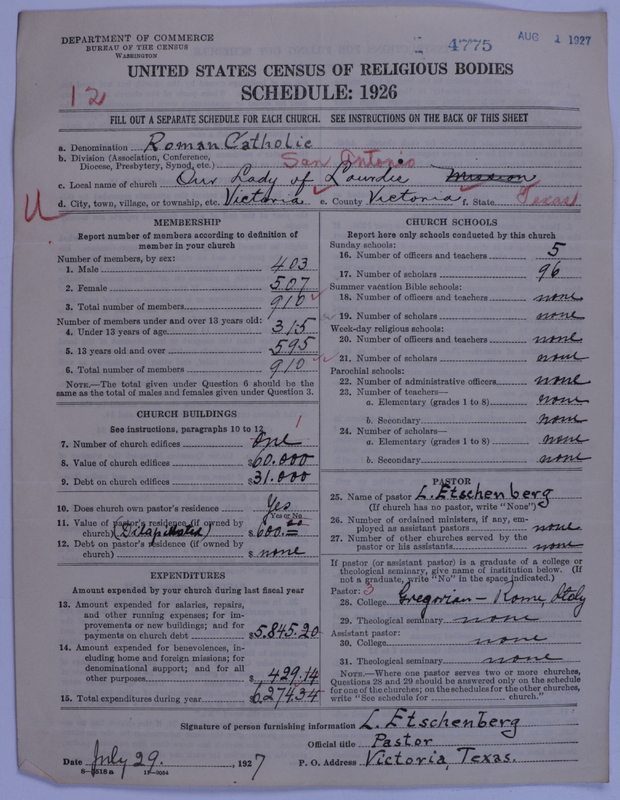 DEPARTMENT OF COMMERCE
BUREAU OF THE CENSUS
WASHINGTON
4775
AUG 1 1927
UNITED STATES CENSUS OF RELIGIOUS BODIES
SCHEDULE: 1926
12
FILL OUT A SEPARATE SCHEDULE FOR EACH CHURCH. SEE INSTRUCTIONS ON THE BACK OF THIS SHEET
a. Denomination Roman Catholic
b. Division (Association, Conference,
Diocese, Presbytery, Synod, etc.) San Antonio
c. Local name of church Our Lady of Lourdie Mission
d. City, town, village, or township, etc. Victoria e. County Victoria f. State Texas
MEMBERSHIP
Report number of members according to definition of
member in your church
Number of members, by sex:
1. Male 403
2. Female 507
3. Total number of members 910
Number of members under and over 13 years old:
4. Under 13 years of age 315
5. 13 years old and over 595
6. Total number of members 910
NOTE.—The total given under Question 6 should be the
same as the total of males and females given under Question 3.
CHURCH BUILDINGS
See instructions, paragraphs 10 to 12
7. Number of church edifices One 1
8. Value of church edifices $60.000
9. Debt on church edifices $31.000
10. Does church own pastor's residence? Yes
Yes or No
11. Value of pastor's residence (if owned by
church) (Dilapidated) $600.00
12. Debt on pastor's residence (if owned by
church) $ none
EXPENDITURES
Amount expended by your church during last fiscal year
13. Amount expended for salaries, repairs,
and other running expenses; for im-
provements or new buildings; and for
payments on church debt $5.845.20
14. Amount expended for benevolences, in-
cluding home and foreign missions; for
denominational support; and for all
other purposes $429.14
15. Total expenditures during year $6,274.34
CHURCH SCHOOLS
Report here only schools conducted by this church
Sunday schools:
16. Number of officers and teachers 5
17. Number of scholars 96
Summer vacation Bible schools:
18. Number of officers and teachers none
19. Number of scholars none
Week-day religious schools:
20. Number of officers and teachers none
21. Number of scholars none
Parochial schools:
22. Number of administrative officers none
23. Number of teachers—
a. Elementary (grades 1 to 8) none
b. Secondary none
24. Number of scholars—
a. Elementary (grades 1 to 8) none
b. Secondary none
PASTOR
25. Name of pastor L. Etschenberg
(If church has no pastor, write "None")
26. Number of ordained ministers, if any, em-
ployed as assistant pastors none
27. Number of other churches served by the
pastor or his assistants none
If pastor (or assistant pastor) is a graduate of a college or
theological seminary, give name of institution below. (If
not a graduate, write "No" in the space indicated.)
Pastor: 3
28. College Gregorian - Rome, Italy
29. Theological seminary none
Assistant pastor:
30. College none
31. Theological seminary none
NOTE.—Where one pastor serves two or more churches,
Questions 28 and 29 should be answered only on the schedule
for one of the churches; on the schedules for the other churches,
write "See schedule for church."
Signature of person furnishing information L. Etschenberg
Official title Pastor
Date July 29. , 1927 P. O. Address Victoria, Texas.